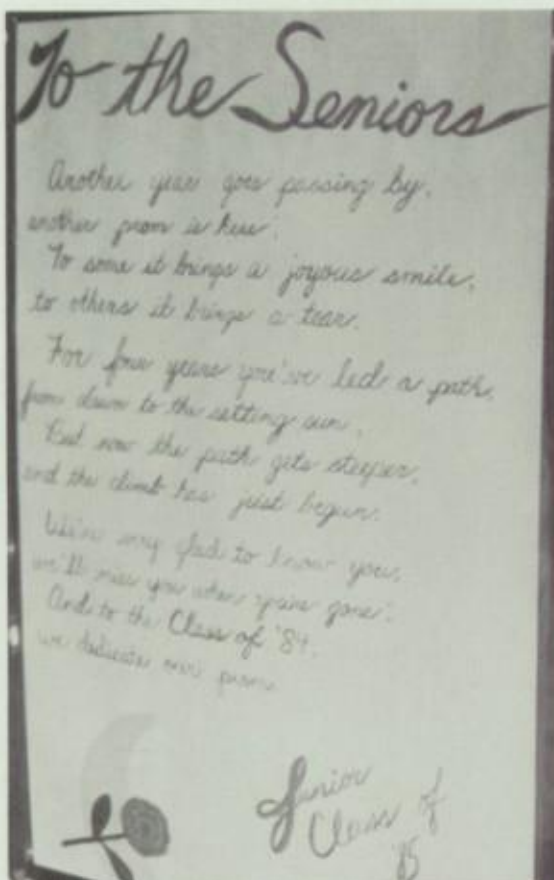 To the Seniors
Another year goes passing by,
another prom is here.
To some it brings a joyous smile,
to others it brings a tear.
For four years you've led a path,
from dawn to the setting sun.
But now the path gets steeper,
and the climb has just begun.
We're very glad to know you,
we'll miss you when you're gone.
And to the Class of '84,
we dedicate our prom.
Junior
Class of
'85